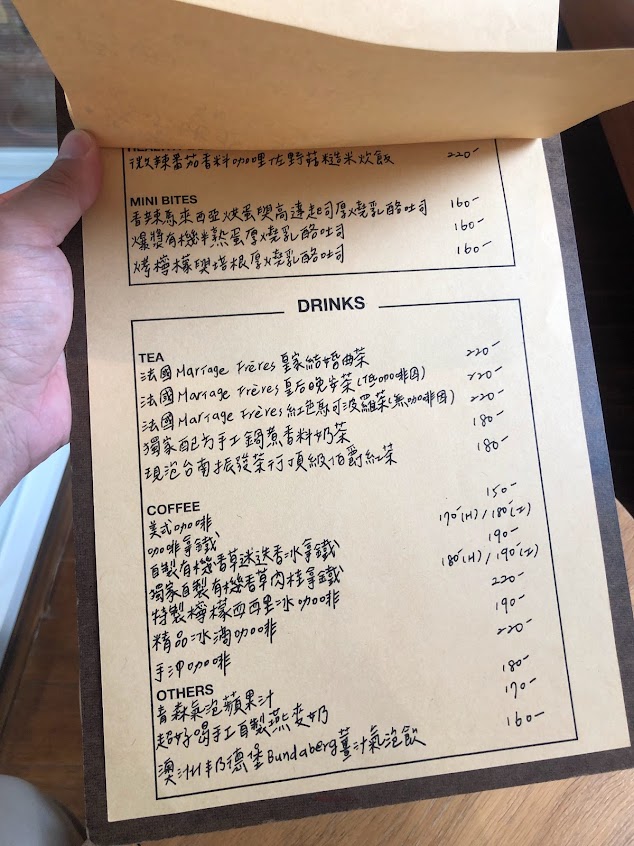 微辣番茄香料咖哩佐野菇糙米炊飯 220-
MINI BITES
香辣馬來西亞炒蛋與高達起司厚燒乳酪吐司 160-
爆漿有機半熟蛋厚燒乳酪吐司 160-
烤檸檬與培根厚燒乳酪吐司 160-
DRINKS
TEA
法國 Mariage Frères 皇家結婚曲茶 220-
法國 Mariage Frères 皇后晚安茶(低咖啡因) 220-
法國 Mariage Frères 紅色馬可波羅茶(無咖啡因) 220-
獨家配方手工鍋煮香料奶茶 180-
現泡台南振發茶行頂級伯爵紅茶 180-
COFFEE
美式咖啡 150-
咖啡拿鐵 170-(H)/180-(I)
自製有機香草迷迭香冰拿鐵 190-
獨家自製有機香草肉桂拿鐵 180-(H)/190-(I)
特製檸檬西西里冰咖啡 220-
精品冰滴咖啡 190-
手沖咖啡 220-
OTHERS
青森氣泡蘋果汁 180-
超好喝手工自製燕麥奶 170-
澳洲 Bundaberg 薑汁氣泡飲 160-